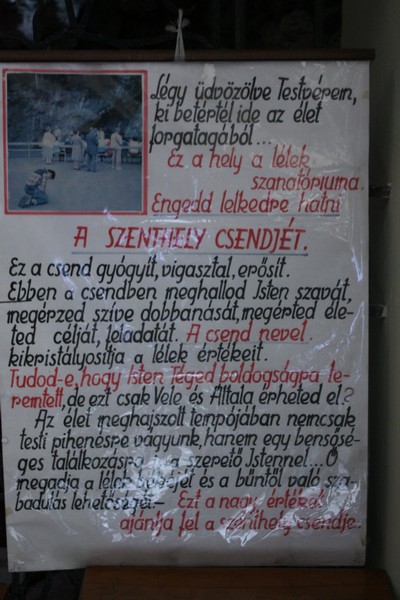 Légy üdvözölve Testvérem,
ki betértél ide az élet
forgatagából...
Ez a hely a lélek
szanatóriuma.
Engedd lelkedre hatni
A SZENTHELY CSENDJÉT.
Ez a csend gyógyít, vigasztal, erősít.
Ebben a csendben meghallod Isten szavát,
megérzed szíve dobbanását, megérted éle-
ted célját, feladatát. A csend nevel.
kikristályosítja a lélek értékeit.
Tudod-e, hogy Isten Téged boldogságra te-
remtett, de ezt csak Vele és Általa érheted el?
Az élet meghajszolt tempójában nemcsak
testi pihenésre vágyunk, hanem egy bensősé-
ges találkozásra is a szerető Istennel... Ő
megadja a lélek békéjét és a bűntől való sza-
badulás lehetőségét.- Ezt a nagy értéket
ajánlja fel a szenthely csendje.